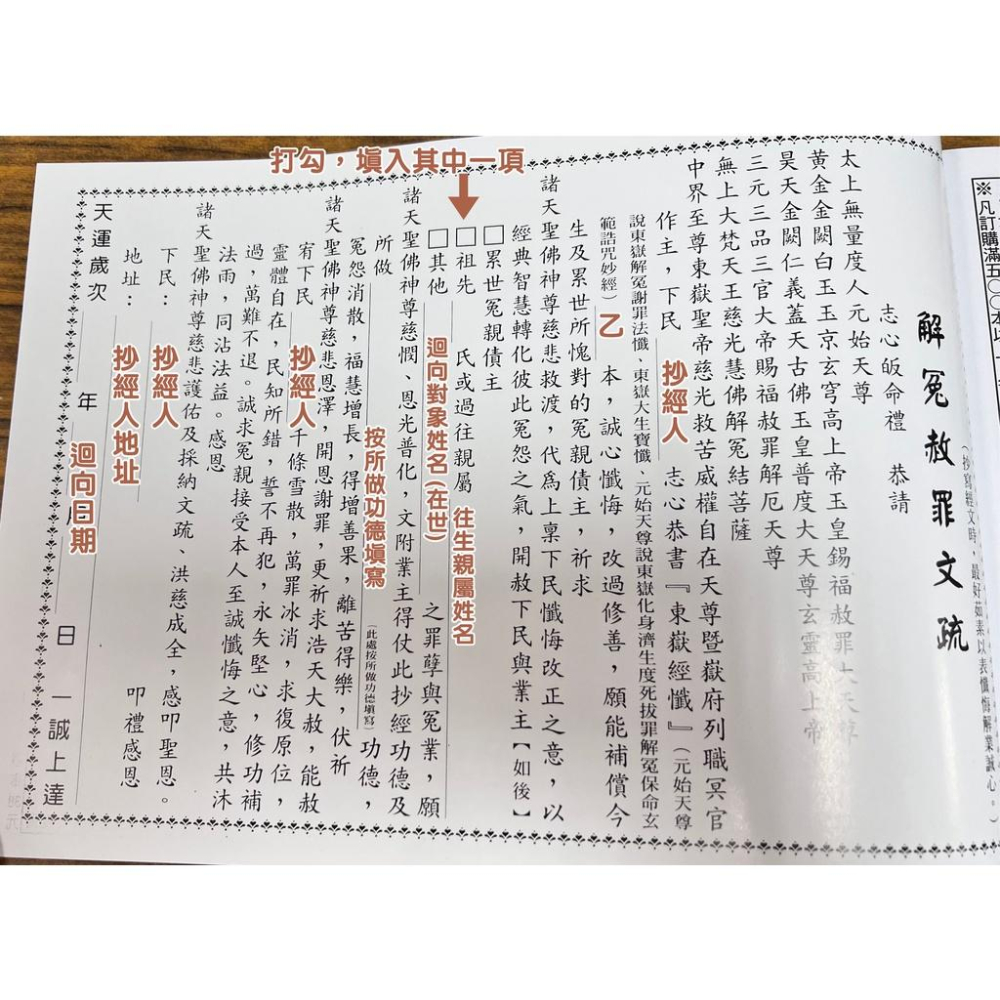 ※凡訂購滿五〇〇本以
(抄寫經文時,最好茹素以表懺悔解業誠心。)
解冤赦罪文疏
志心皈命禮 恭請
太上無量度人元始天尊
黃金金闕白玉玉京玄穹高上帝玉皇錫福赦罪大天尊
昊天金闕仁義蓋天古佛玉皇普度大天尊玄靈高上帝
三元三品三官大帝賜福赦罪解厄天尊
無上大梵天王慈光慧佛解冤結菩薩
中界至尊東嶽聖帝慈光救苦威權自在天尊暨嶽府列職冥官
作主,下民 抄經人 志心恭書『東嶽經懺』(元始天尊
說東嶽解冤謝罪法懺、東嶽大生寶懺、元始天尊說東嶽化身濟生度死拔罪解冤保命玄
範誥咒妙經) 乙 本,誠心懺悔,改過修善,願能補償今
生及累世所愧對的冤親債主,祈求
諸天聖佛神尊慈悲救渡,代為上稟下民懺悔改正之意,以
經典智慧轉化彼此冤怨之氣,開赦下民與業主【如後】
打勾,填入其中一項
□累世冤親債主
□祖先 民或過往親屬 往生親屬姓名
□其他 迴向對象姓名(在世) 之罪孽與冤業,願
諸天聖佛神尊慈憫、恩光普化,文附業主得仗此抄經功德及
所做 按所做功德填寫 (此處按所做功德填寫) 功德,
冤怨消散,福慧增長,得增善果,離苦得樂,伏祈
諸天聖佛神尊慈悲恩澤,開恩謝罪,更祈求浩天大赦,能赦
宥下民 抄經人 千條雪散,萬罪冰消,求復原位,
靈體自在,民知所錯,誓不再犯,永矢堅心,修功補
過,萬難不退。誠求冤親接受本人至誠懺悔之意,共沐
法雨,同沾法益。感恩
諸天聖佛神尊慈悲護佑及採納文疏、洪慈成全,感叩聖恩。
下民: 抄經人 叩禮感恩
地址: 抄經人地址
天運歲次 年 月 日 一誠上達
迴向日期